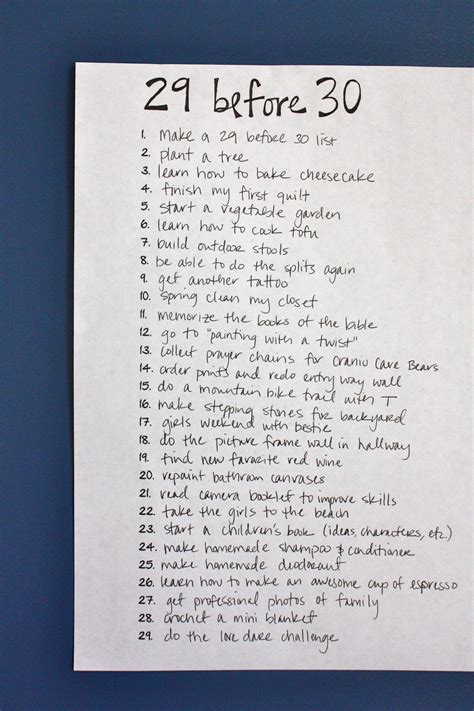 29 before 30
1. make a 29 before 30 list
2. plant a tree
3. learn how to bake cheesecake
4. finish my first quilt
5. start a vegetable garden
6. learn how to cook tofu
7. build outdoor stools
8. be able to do the splits again
9. get another tattoo
10. spring clean my closet
11. memorize the books of the bible
12. go to "painting with a twist"
13. collect prayer chains for Cranio Care Bears
14. order prints and redo entry way wall
15. do a mountain bike trail with T
16. make stepping stones for backyard
17. girls weekend with bestie
18. do the picture frame wall in hallway
19. find new favorite red wine
20. repaint bathroom canvases
21. read camera booklet to improve skills
22. take the girls to the beach
23. start a children's book (ideas, characters, etc.)
24. make homemade shampoo & conditioner
25. make homemade deodorant
26. learn how to make an awesome cup of espresso
27. get professional photos of family
28. crochet a mini blanket
29. do the love dare challenge